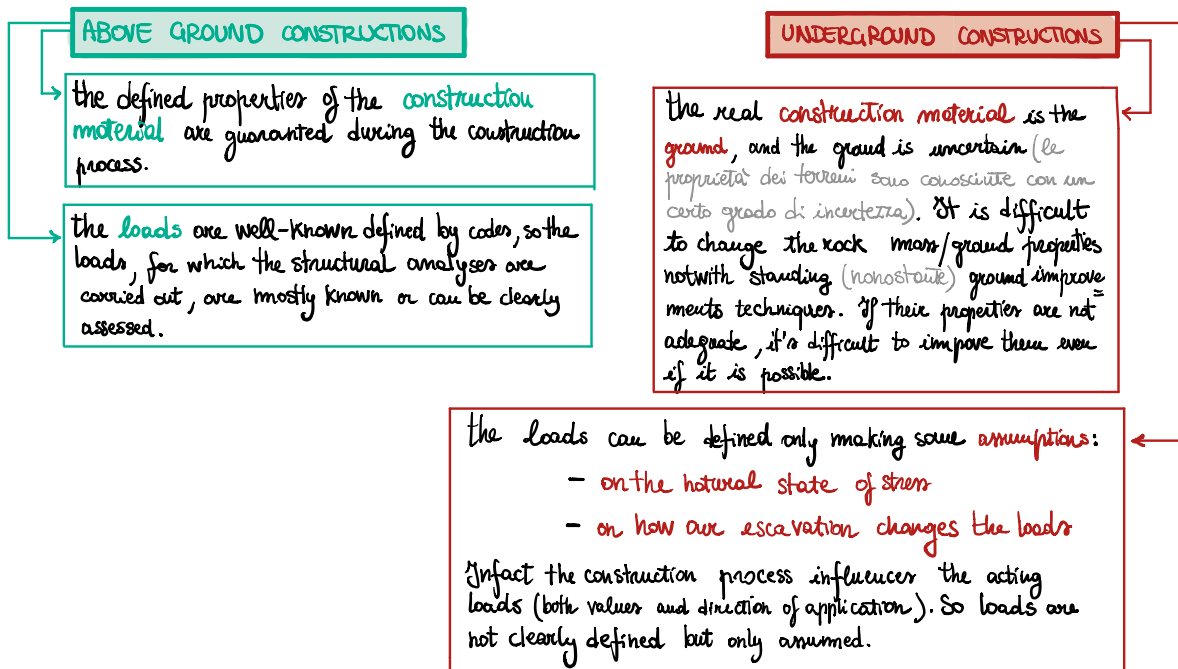 ABOVE GROUND CONSTRUCTIONS
the defined properties of the construction
material are guaranted during the construction
process.
the loads are well-known defined by codes, so the
loads, for which the structural analyses are
carried out, are mostly known or can be clearly
assessed.
UNDERGROUND CONSTRUCTIONS
the real construction material is the
ground, and the ground is uncertain (le
proprietà dei terreni sono conosciute con un
certo grado di incertezza). It is difficult
to change the rock mass/ground properties
notwith standing (nonostante) ground improve
ments techniques. If their properties are not
adequate, it's difficult to improve them even
if it is possible.
the loads can be defined only making some assumptions:
- on the natural state of stress
- on how our escavation changes the loads
Infact the construction process influences the acting
loads (both values and direction of application). So loads are
not clearly defined but only assumed.